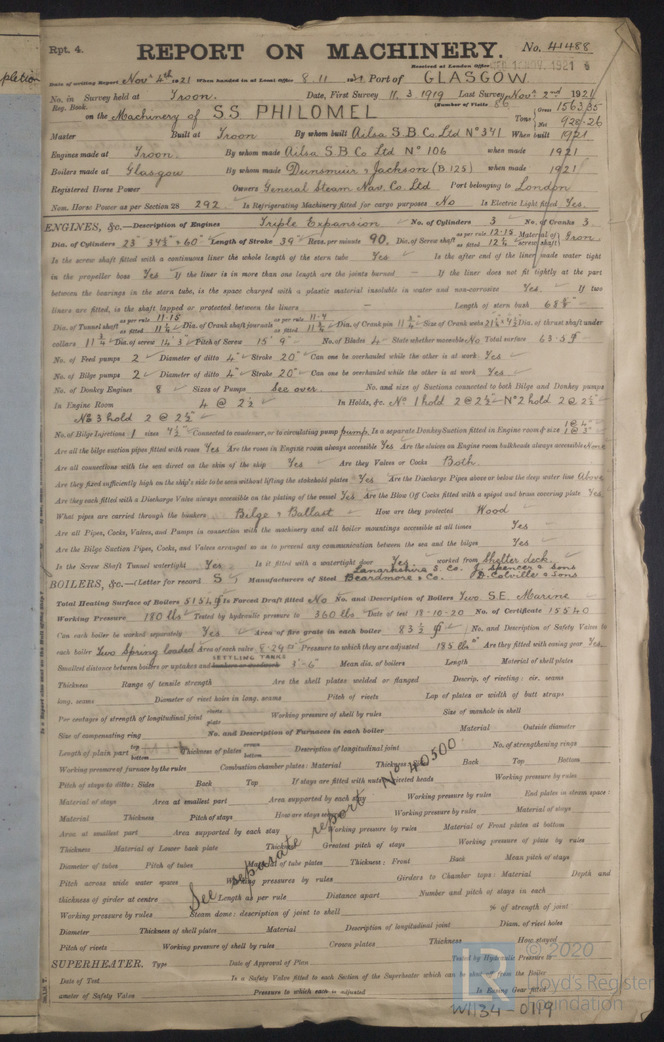 Rpt. 4.
REPORT ON MACHINERY. No. 41488
Received at London Office 1921
Date of writing Report Nov. 4th 1921 When handed in at Local Office 8.11.1921 Port of GLASGOW
No. in Survey held at Troon. Date, First Survey 11.3.1919 Last Survey Nov. 2nd 1921
Reg. Book. (Number of Visits 86
on the Machinery of S.S PHILOMEL Tons Gross 1563.35 Net 928.26
Master Built at Troon By whom built Ailsa S B Co Ltd No 341 When built 1921
Engines made at Troon. By whom made Ailsa S B Co Ltd No 106 when made 1921
Boilers made at Glasgow By whom made Dunsmuir & Jackson (B 125) when made 1921
Registered Horse Power Owners General Steam Nav. Co Ltd Port belonging to London
Nom. Horse Power as per Section 28 292. Is Refrigerating Machinery fitted for cargo purposes No Is Electric Light fitted Yes.
ENGINES, &c.—Description of Engines Triple Expansion No. of Cylinders 3 No. of Cranks 3
Dia. of Cylinders 23" 34½" & 60" Length of Stroke 39" Revs. per minute 90. Dia. of Screw shaft as per rule 12.15 as fitted 12½ Material of screw shaft Iron
Is the screw shaft fitted with a continuous liner the whole length of the stern tube Yes Is the after end of the liner made water tight
in the propeller boss Yes If the liner is in more than one length are the joints burned — If the liner does not fit tightly at the part
between the bearings in the stern tube, is the space charged with a plastic material insoluble in water and non-corrosive Yes If two
liners are fitted, is the shaft lapped or protected between the liners — Length of stern bush
Dia. of Tunnel shaft as per rule as fitted Dia. of Crank shaft journals as per rule as fitted Dia. of Crank pin 11¾" Size of Crank webs Dia. of thrust shaft under
collars 11¾" Dia. of screw 14' 3" Pitch of Screw 15' 9" No. of Blades 4 State whether moveable No Total surface
No. of Feed pumps 2 Diameter of ditto 4" Stroke 20" Can one be overhauled while the other is at work Yes
No. of Bilge pumps 2 Diameter of ditto 4" Stroke 20" Can one be overhauled while the other is at work Yes
No. of Donkey Engines 8 Sizes of Pumps See over No. and size of Suctions connected to both Bilge and Donkey pumps
In Engine Room 4 @ 2½ In Holds, &c. No 1 hold 2 @ 2½ No 2 hold 2 @ 2½"
No 3 hold 2 @ 2½"
No. of Bilge Injections 1 sizes Connected to condenser, or to circulating pump pump Is a separate Donkey Suction fitted in Engine room & size 1 @ 4" 1 @ 3"
Are all the bilge suction pipes fitted with roses Yes Are the roses in Engine room always accessible Yes Are the sluices on Engine room bulkheads always accessible None
Are all connections with the sea direct on the skin of the ship Yes Are they Valves or Cocks Both.
Are they fixed sufficiently high on the ship's side to be seen without lifting the stokehold plates Yes Are the Discharge Pipes above or below the deep water line Above
Are they each fitted with a Discharge Valve always accessible on the plating of the vessel Yes Are the Blow Off Cocks fitted with a spigot and brass covering plate Yes
What pipes are carried through the bunkers Bilge & Ballast How are they protected Wood
Are all Pipes, Cocks, Valves, and Pumps in connection with the machinery and all boiler mountings accessible at all times Yes
Are the Bilge Suction Pipes, Cocks, and Valves arranged so as to prevent any communication between the sea and the bilges Yes
Is the Screw Shaft Tunnel watertight Yes Is it fitted with a watertight door Yes worked from Shelter deck.
BOILERS, &c.—(Letter for record S) Manufacturers of Steel Lanarkshire S. Co. J. Spencer & Sons Beardmore & Co. D. Colville & Sons
Total Heating Surface of Boilers Is Forced Draft fitted No No. and Description of Boilers Two S.E. Marine
Working Pressure 180 lbs Tested by hydraulic pressure to 360 lbs Date of test 18-10-20 No. of Certificate 15540
Can each boiler be worked separately Yes Area of fire grate in each boiler 83½ No. and Description of Safety Valves to
each boiler Two Spring loaded Area of each valve 8.29 Pressure to which they are adjusted 185 lbs Are they fitted with easing gear Yes
SETTLING TANKS
Smallest distance between boilers or uptakes and bunkers or woodwork 3'-6" Mean dia. of boilers Length Material of shell plates
Thickness Range of tensile strength Are the shell plates welded or flanged Descrip. of riveting: cir. seams
long. seams Diameter of rivet holes in long. seams Pitch of rivets Lap of plates or width of butt straps
Per centages of strength of longitudinal joint rivets plate Working pressure of shell by rules Size of manhole in shell
Size of compensating ring No. and Description of Furnaces in each boiler Material Outside diameter
Length of plain part top bottom Thickness of plates crown bottom Description of longitudinal joint No. of strengthening rings
Working pressure of furnace by the rules Combustion chamber plates: Material Thickness: Sides Back Top Bottom
Pitch of stays to ditto: Sides Back Top If stays are fitted with nuts or riveted heads Working pressure by rules
Material of stays Area at smallest part Area supported by each stay Working pressure by rules End plates in steam space:
Material Thickness Pitch of stays How are stays secured Working pressure by rules Material of stays
Area at smallest part Area supported by each stay Working pressure by rules Material of Front plates at bottom
Thickness Material of Lower back plate Thickness Greatest pitch of stays Working pressure of plate by rules
Diameter of tubes Pitch of tubes Material of tube plates Thickness: Front Back Mean pitch of stays
Pitch across wide water spaces Working pressures by rules Girders to Chamber tops: Material Depth and
thickness of girder at centre Length as per rule Distance apart Number and pitch of stays in each
Working pressure by rules Steam dome: description of joint to shell % of strength of joint
Diameter Thickness of shell plates Material Description of longitudinal joint Diam. of rivet holes
Pitch of rivets Working pressure of shell by rules Crown plates Thickness How stayed
See separate report No 40500.
SUPERHEATER. Type Date of Approval of Plan Tested by Hydraulic Pressure to
Date of Test Is a Safety Valve fitted to each Section of the Superheater which can be shut off from the Boiler
ameter of Safety Valve Pressure to which each is adjusted Is Easing Gear fitted
© 2020
Lloyd's Register
Foundation
W1134-0119